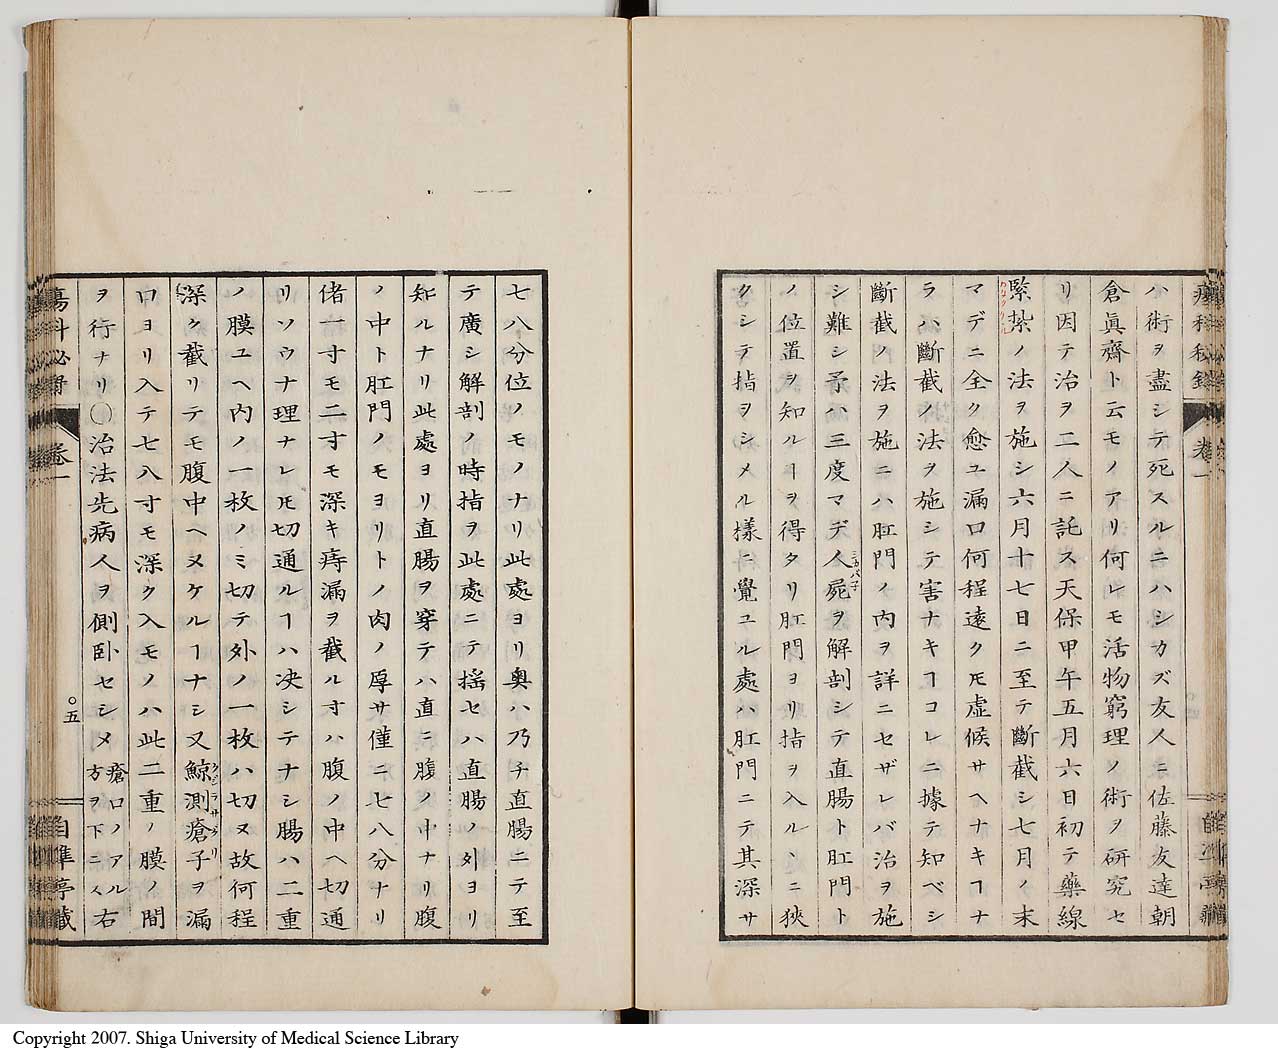 瘍科秘録
卷一
ハ術ヲ盡シテ死スルニハシカズ友人ニ佐藤友達朝
倉眞齋ト云モノアリ何レモ活物窮理ノ術ヲ研究セ
リ因テ治ヲ二人ニ託ス天保甲午五月六日初テ藥線
緊紮ノ法ヲ施シ六月十七日ニ至テ斷截シ七月ノ末
マデニ全ク愈ユ漏口何程遠クモ虚候サヘナキヿナ
ラハ斷截ノ法ヲ施シテ害ナキヿコレニ據テ知ベシ
斷截ノ法ヲ施ニハ肛門ノ内ヲ詳ニセザレバ治ヲ施
シ難シ予ハ三度マデ人屍ヲ解剖シテ直腸ト肛門ト
ノ位置ヲ知ルヿヲ得タリ肛門ヨリ指ヲ入ルヽニ狹
クシテ指ヲシメル樣ニ覺ユル處ハ肛門ニテ其深サ
七八分位ノモノナリ此處ヨリ奥ハ乃チ直腸ニテ至
テ廣シ解剖ノ時指ヲ此處ニテ搖セハ直腸ノ外ヨリ
知ルナリ此處ヨリ直腸ヲ穿テハ直ニ腹ノ中ナリ腹
ノ中ト肛門ノモヨリトノ肉ノ厚サ僅ニ七八分ナリ
偖一寸モ二寸モ深キ痔漏ヲ截ルヿハ腹ノ中ヘ切通
リソウナ理ナレ𪜈切通ルヿハ决シテナシ腸ハ二重
ノ膜ユヘ内ノ一枚ノミ切テ外ノ一枚ハ切ヌ故何程
深ク截リテモ腹中ヘヌケルヿナシ又鯨測瘡子ヲ漏
クジラサグリ
口ヨリ入テ七八寸モ深ク入モノハ此二重ノ膜ノ間
ヲ行ナリ○治法先病人ヲ側卧セシメ瘡口ノアル右
方ヲ下ニス
卷一
○五
自準亭藏
Copyright 2007. Shiga University of Medical Science Library